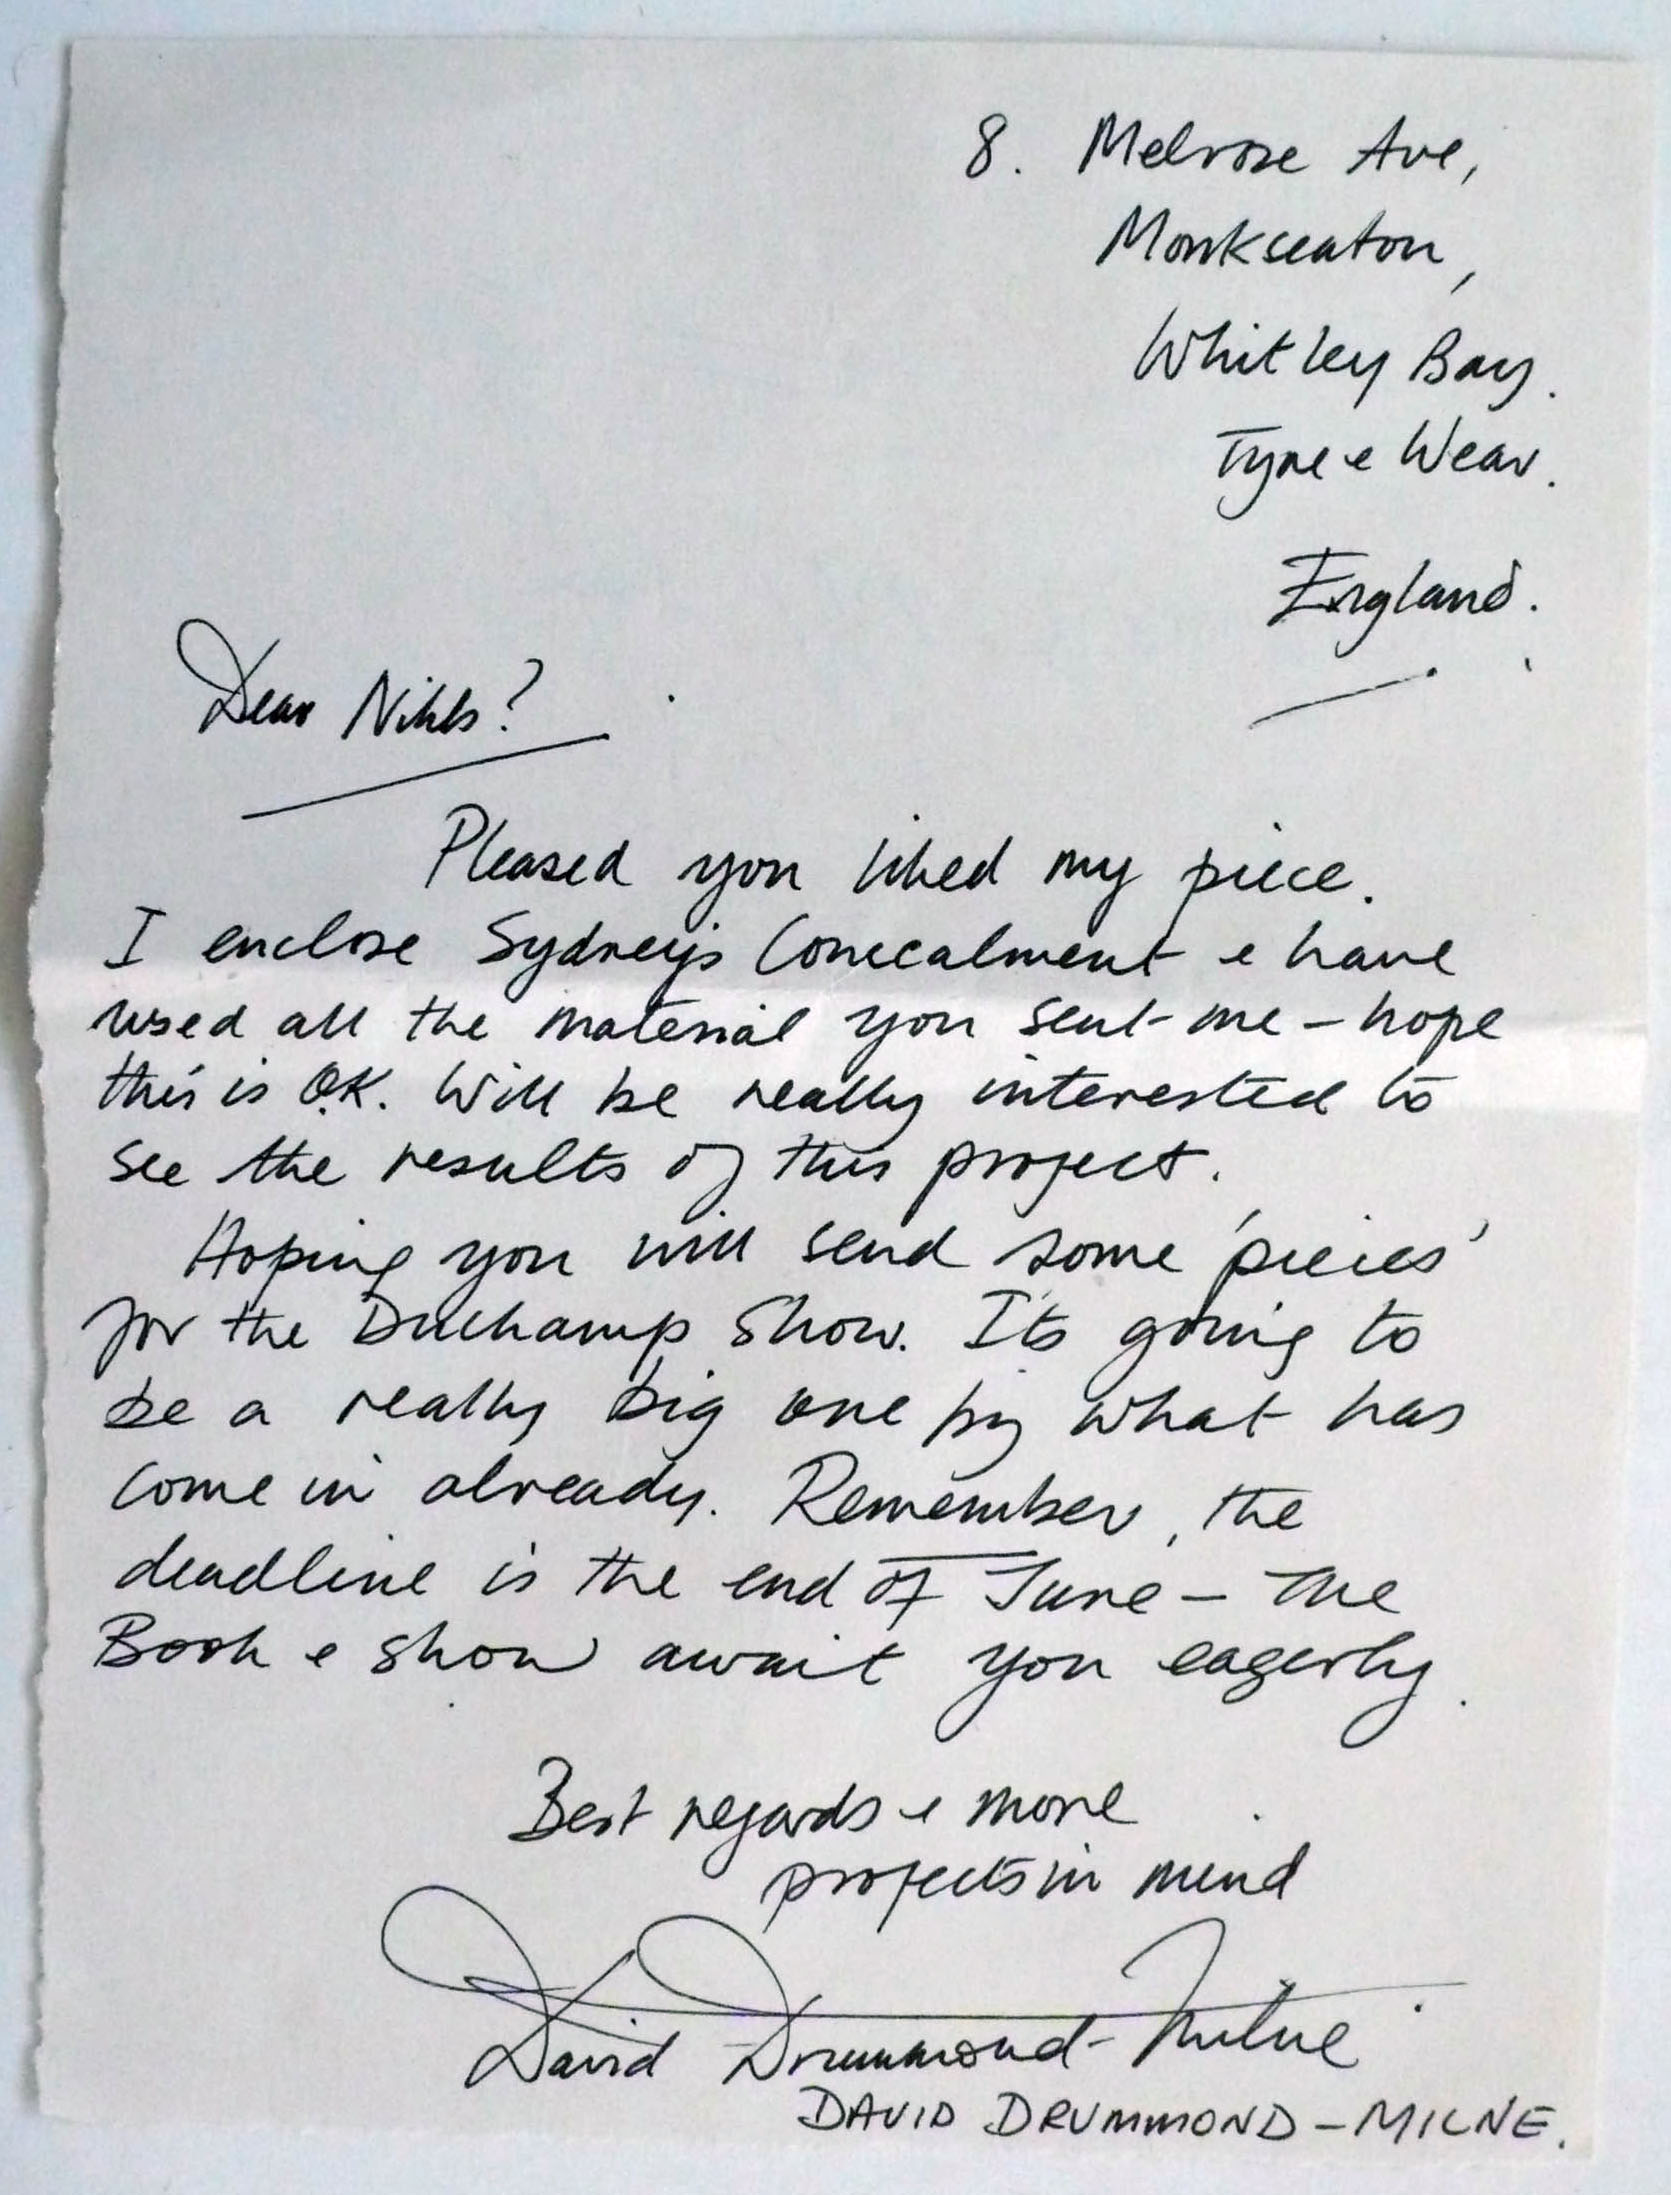 8. Melrose Ave,
Monkseaton,
Whitley Bay.
Tyne e Wear.
England.
Dear Niels?
Pleased you liked my piece.
I enclose Sydney's Concealment e have
used all the material you sent me – hope
this is O.K. Will be really interested to
see the results of this project.
Hoping you will send some 'pieces'
for the Duchamp Show. It's going to
be a really big one by what has
come in already. Remember, the
deadline is the end of June – the
Book e show await you eagerly.
Best regards e more
projects in mind
David Drummond-Milne
DAVID DRUMMOND – MILNE.